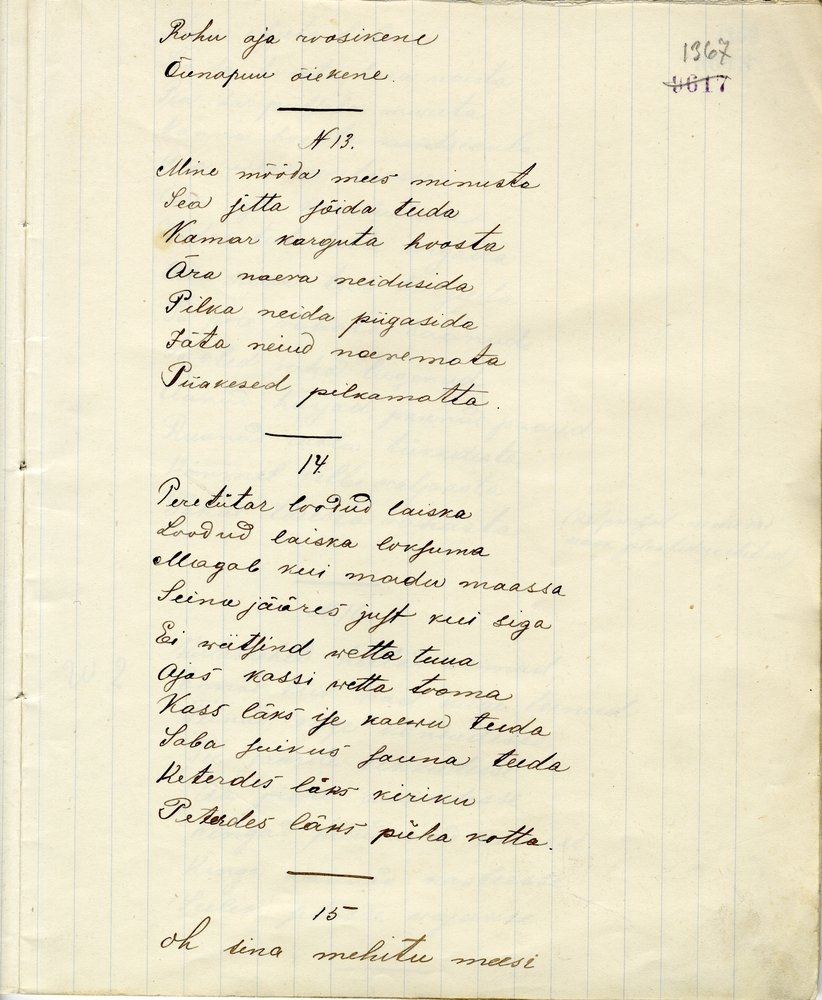 Rohu aja roosikene
Õunapuu õiekene.
1367
9617
N 13.
Mine mööda mees minusta
Sea jitta sõida teeda
Kamar karguta hoosta
Ära naera neidusida
Pilka neida piigasida
Jäta neiud naeremata
Piiakesed pilkamatta.
14.
Peretütar loodud laiska
Loodud laiska loksuma
Magab kui madu maassa
Seina jääres just kui siga
Ei wiitsind wetta tuua
Ajas kassi wetta tooma
Kass läks ise kaewu teeda
Saba suikus sauna teeda
Keterdes läks kiriku
Peterdes läks püha kotta.
15
Oh sina mehitu meesi